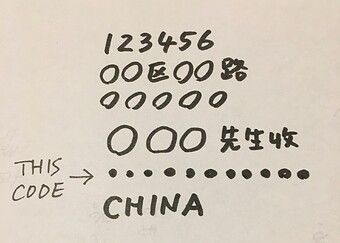 123456
〇〇区〇〇路
〇〇〇〇〇
〇〇〇先生收
THIS CODE → • • • • • • • • • • •
CHINA